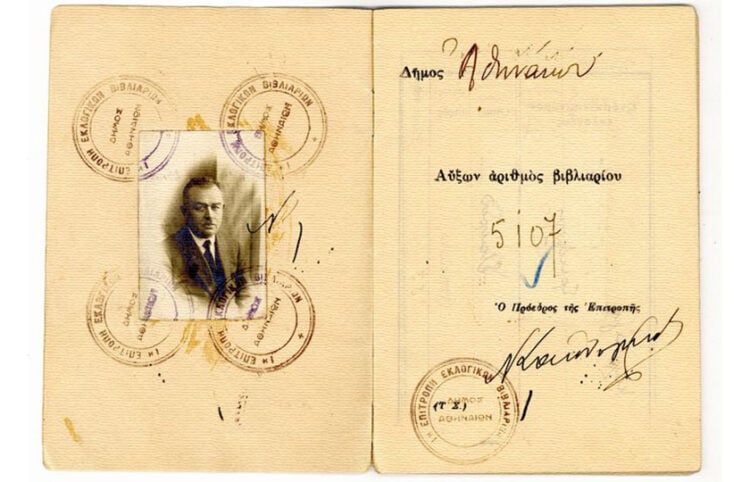 1η ΕΠΙΤΡΟΠΗ ΕΚΛΟΓΙΚΩΝ ΒΙΒΛΙΑΡΙΩΝ
ΔΗΜΟΣ
ΑΘΗΝΑΙΩΝ
1η ΕΠΙΤΡΟΠΗ ΕΚΛΟΓΙΚΩΝ ΒΙΒΛΙΑΡΙΩΝ
ΔΗΜΟΣ
ΑΘΗΝΑΙΩΝ
1η ΕΠΙΤΡΟΠΗ ΕΚΛΟΓΙΚΩΝ ΒΙΒΛΙΑΡΙΩΝ
ΔΗΜΟΣ
ΑΘΗΝΑΙΩΝ
1η ΕΠΙΤΡΟΠΗ ΕΚΛΟΓΙΚΩΝ ΒΙΒΛΙΑΡΙΩΝ
ΔΗΜΟΣ
ΑΘΗΝΑΙΩΝ
Δῆμος Ἀθηναίων
Αὔξων ἀριθμὸς βιβλιαρίου
5107
Ὁ Πρόεδρος τῆς Ἐπιτροπῆς
1η ΕΠΙΤΡΟΠΗ ΕΚΛΟΓΙΚΩΝ ΒΙΒΛΙΑΡΙΩΝ
ΔΗΜΟΣ
ΑΘΗΝΑΙΩΝ
(Τ. Σ.)